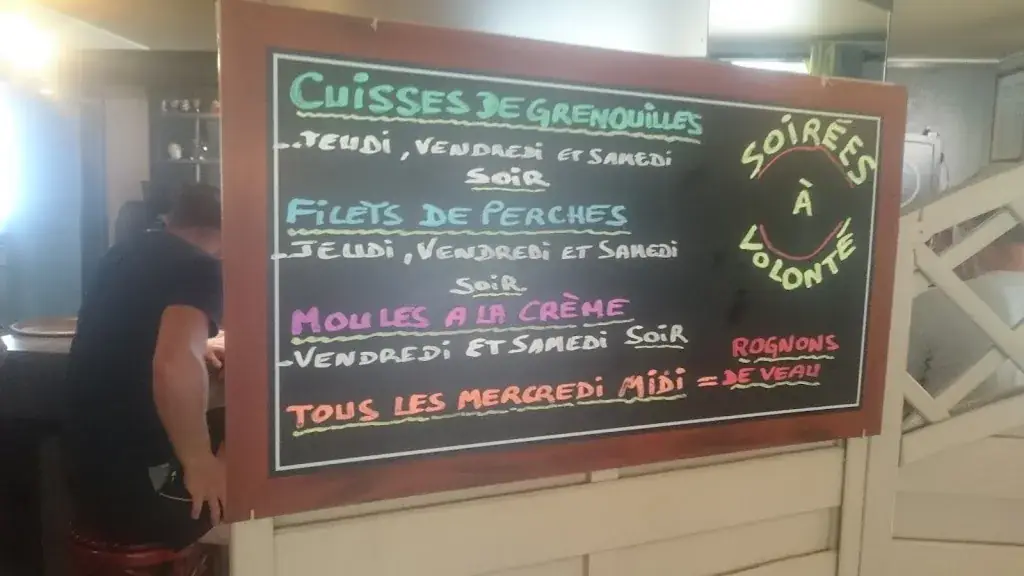 CUISSES DE GRENOUILLES
-JEUDI, VENDREDI ET SAMEDI
SOIR
FILETS DE PERCHES
-JEUDI, VENDREDI ET SAMEDI
SOIR
MOULES A LA CRÈME
-VENDREDI ET SAMEDI SOIR
TOUS LES MERCREDI MIDI = ROGNONS
DE VEAU
SOIRÉES
À
VOLONTÉ